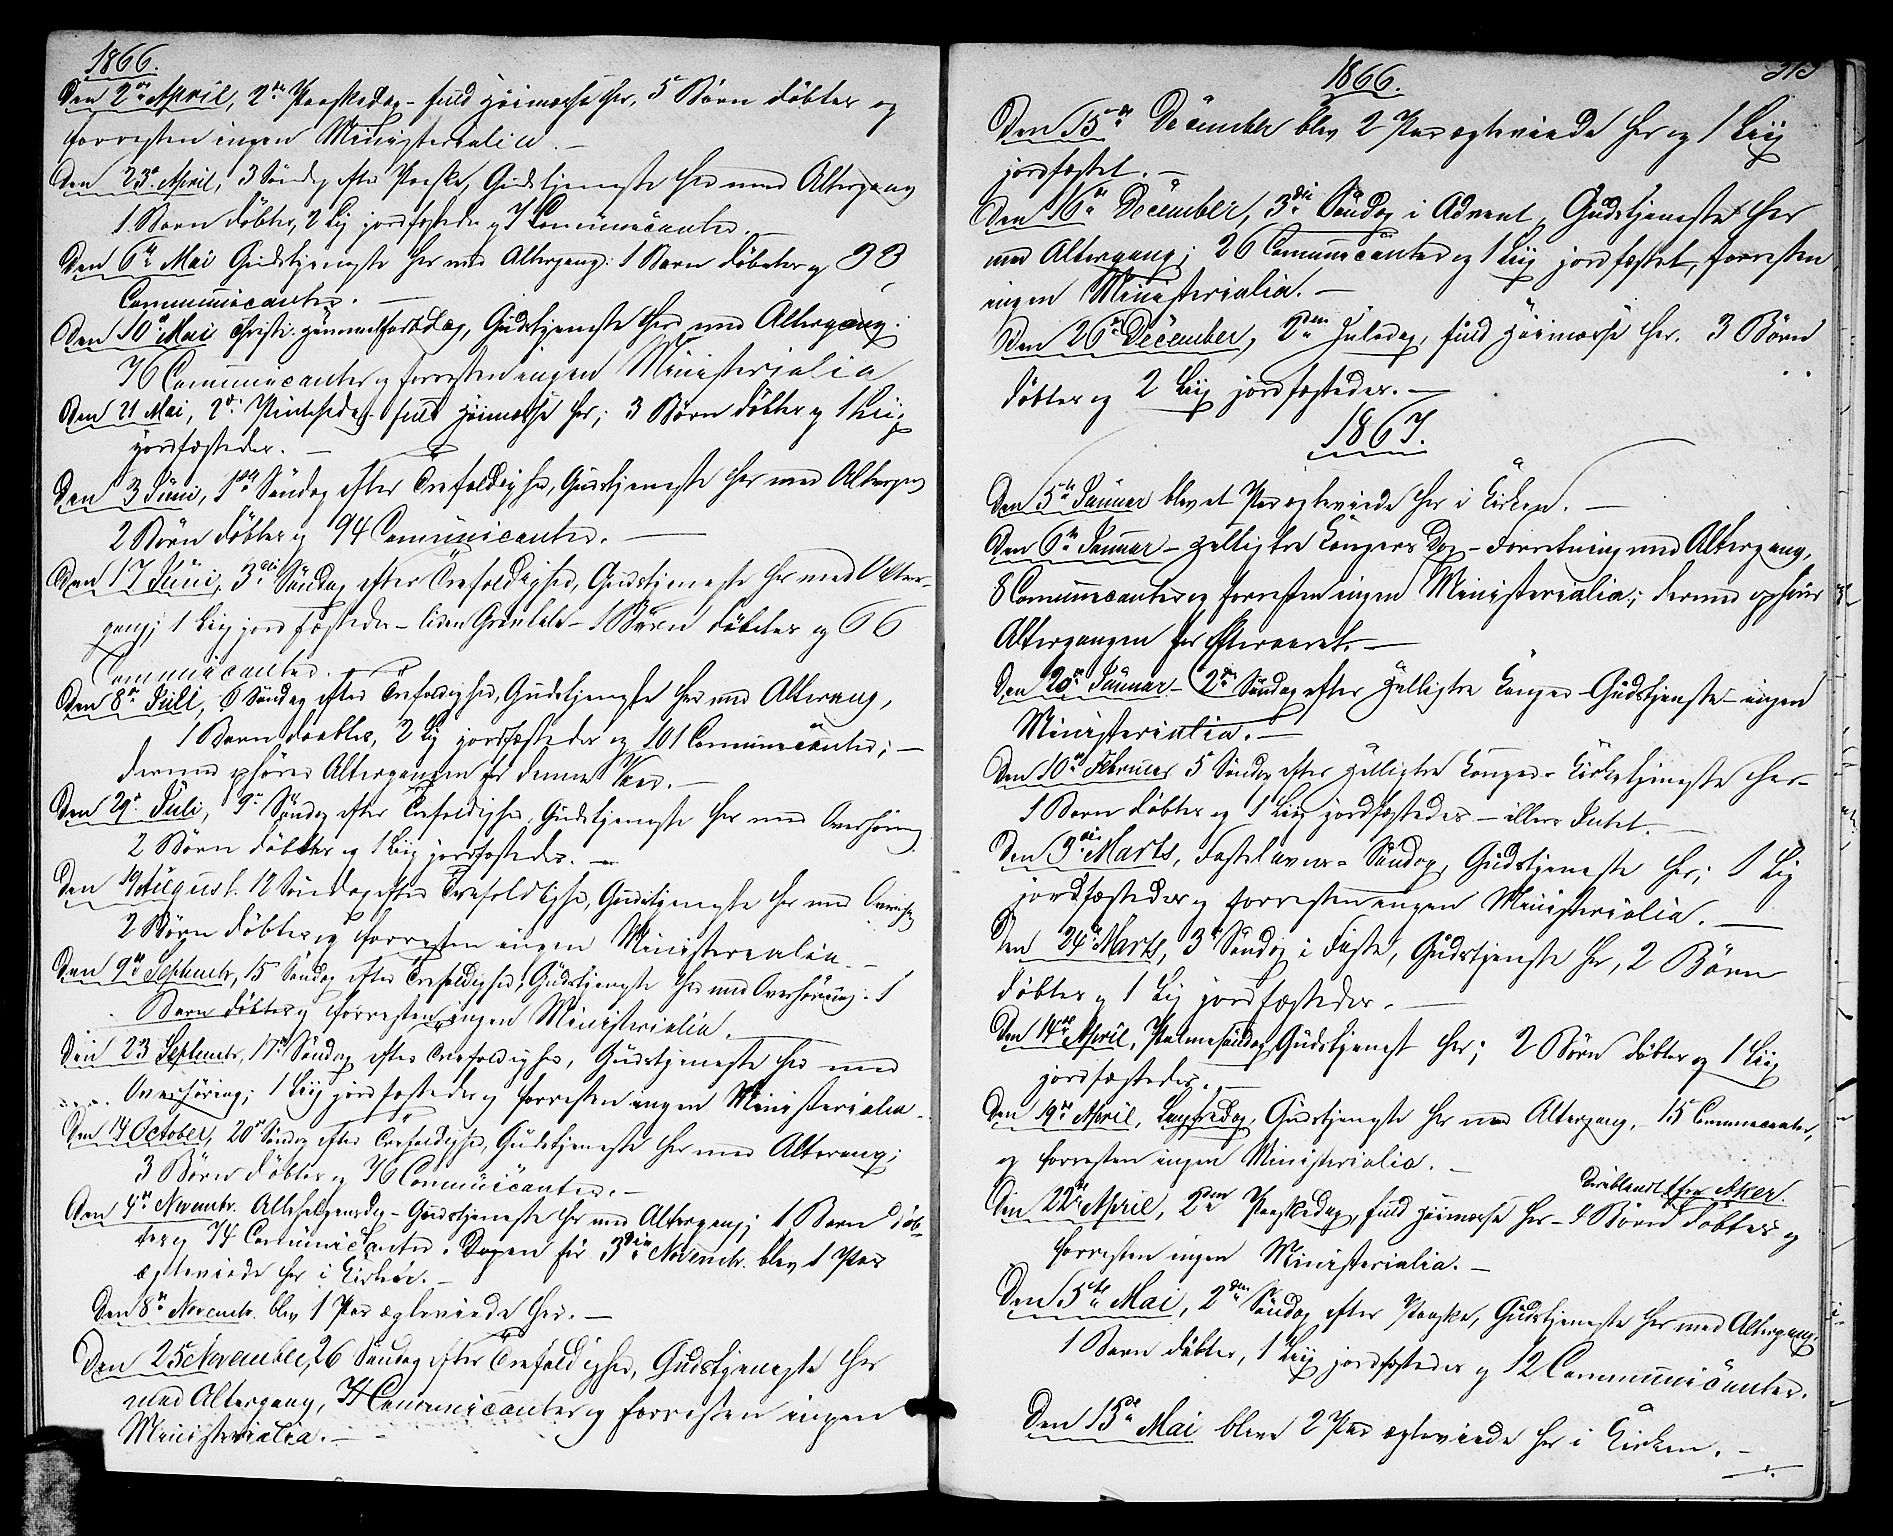 1866.
Den 2den April, 2den Paaskedag - fuld Høimæsse her, 5 Børn døbtes og
forresten ingen Ministerialia. -
Den 23de April, 3 Søndag efter Paaske, Gudstjeneste her med Altergang
1 Barn døbtes, 2 Lig jordfæstedes og 7 Communicanter. -
Den 6te Mai Gudstjeneste her med Altergang: 1 Barn døbtes og 33
Communicanter. -
Den 10de Mai Christi Himmelfartsdag, Gudstjeneste her med Altergang:
76 Communicanter og forresten ingen Ministerialia
Den 21 Mai, 2den Pintsedag - fuld Høimæsse her; 3 Børn døbtes og 1 Liig
jordfæstedes. -
Den 3 Juni, 1ste Søndag efter Trefoldighed, Gudstjeneste her med Altergang
2 Børn døbtes og 94 Comunicanter. -
Den 17 Juni, 3die Søndag efter Trefoldighed, Gudstjeneste her med Alter-
gang; 1 Liig jordfæstedes - - 1 Børn døbtes og 66
Communicanter.
Den 8de Juli, 6 Søndag efter Trefoldighed, Gudstjeneste her med Alterang,
1 Barn døbtes, 2 Lig jordfæstedes og 101 Comunicanter; -
dermed ophører Altergangen for denne Vaar. -
Den 29de Juli, 9de Søndag efter Trefoldighed, Gudstjeneste her med Overhøring
2 Børn døbtes og 1 Liig jordfæstedes. -
Den 19 August. 12 Søndag efter Trefoldighed, Gudstjeneste her med Overhøring
2 Børn døbtes og forresten ingen Ministerialia. -
Den 9de Septembr, 15 Søndag efter Trefoldighed, Gudstjeneste her med Overhøring: 1
Barn døbtes og forresten ingen Ministerialia.
Den 23 Septembr, 17de Søndag efter Trefoldighed, Gudstjeneste her med
Overhøring; 1 Liig jordfæstedes og forresten ingen Ministerialia -
Den 14 October, 20de Søndag efter Trefoldighed, Gudstjeneste her med Alterang;
3 Børn døbtes og 76 Communicanter. -
Den 4de Novembr. Allehelgensdag - Gudstjeneste her med Altergang; 1 Barn døb-
tes og 74 Comunicanter. Dagen før 3die Novembr. blev 1 Par
ægteviede her i Kirken. -
Den 8de Novembr. blev 1 Par ægteviede her. -
Den 25 November, 26 Søndag efter Trefoldighed, Gudstjeneste her
med Altergang, 74 Communicanter og forresten ingen
Ministerialia. -
1866.
Den 15de December blev 2 Par ægteviede her og 1 Liig
jordfæstet. -
Den 16de December, 3die Søndag i Advent, Gudstjeneste her
med Altergang; 26 Comunicanter og 1 Liig jordfæstet, forresten
ingen Ministerialia. -
Den 26de December, 2den Juledag, fuld Høimæsse her. 3 Børn
døbtes og 2 Liig jordfæstedes. -
1867.
Den 5te Januar blev et Par ægteviede her i Kirken. -
Den 6te Januar - Helligtre Kongers Dag - Forretning med Altergang,
8 Comunicanter og forresten ingen Ministerialia; dermed ophører
Altergangen for Efteraaret. -
Den 20de Januar - 2den Søndag efter Helligtre Konger - Gudstjeneste - ingen
Ministerialia. -
Den 10de Februar 5 Søndag efter Helligtre Konger - Kirketjeneste her -
1 Barn døbtes og 1 Liig jordfæstedes - ellers Intet. -
Den 3die Marts, Fastelavns-Søndag, Gudstjeneste her; 1 Lig
jordfæstedes og forresten ingen Ministerialia. -
Den 24de Marts, 3die Søndag i Faste, Gudstjenste her, 2 Børn
døbtes og 1 Lig jordfæstedes. -
Den 14de April, Palmesøndag, Gudstjenest her; 2 Børn døbtes og 1 Liig
jordfæstedes. -
Den 19de April, Langfredag, Gudstjeneste her med Altergang, - 15 Communicanter,
og forresten ingen Ministerialia. -
Den 22de April, 2den Paaskedag, fuld Høimæsse her - 4 Børn døbtes og
iblandt 1 fra Aker.
forresten ingen Ministerialia. -
Den 5te Mai, 2den Søndag efter Paaske, Gudstjeneste her med Altergang
1 Barn døbtes, 1 Liig jordfæstedes og 12 Communicanter.
Den 13de Mai bleve 2 Par ægteviede her i Kirken. -